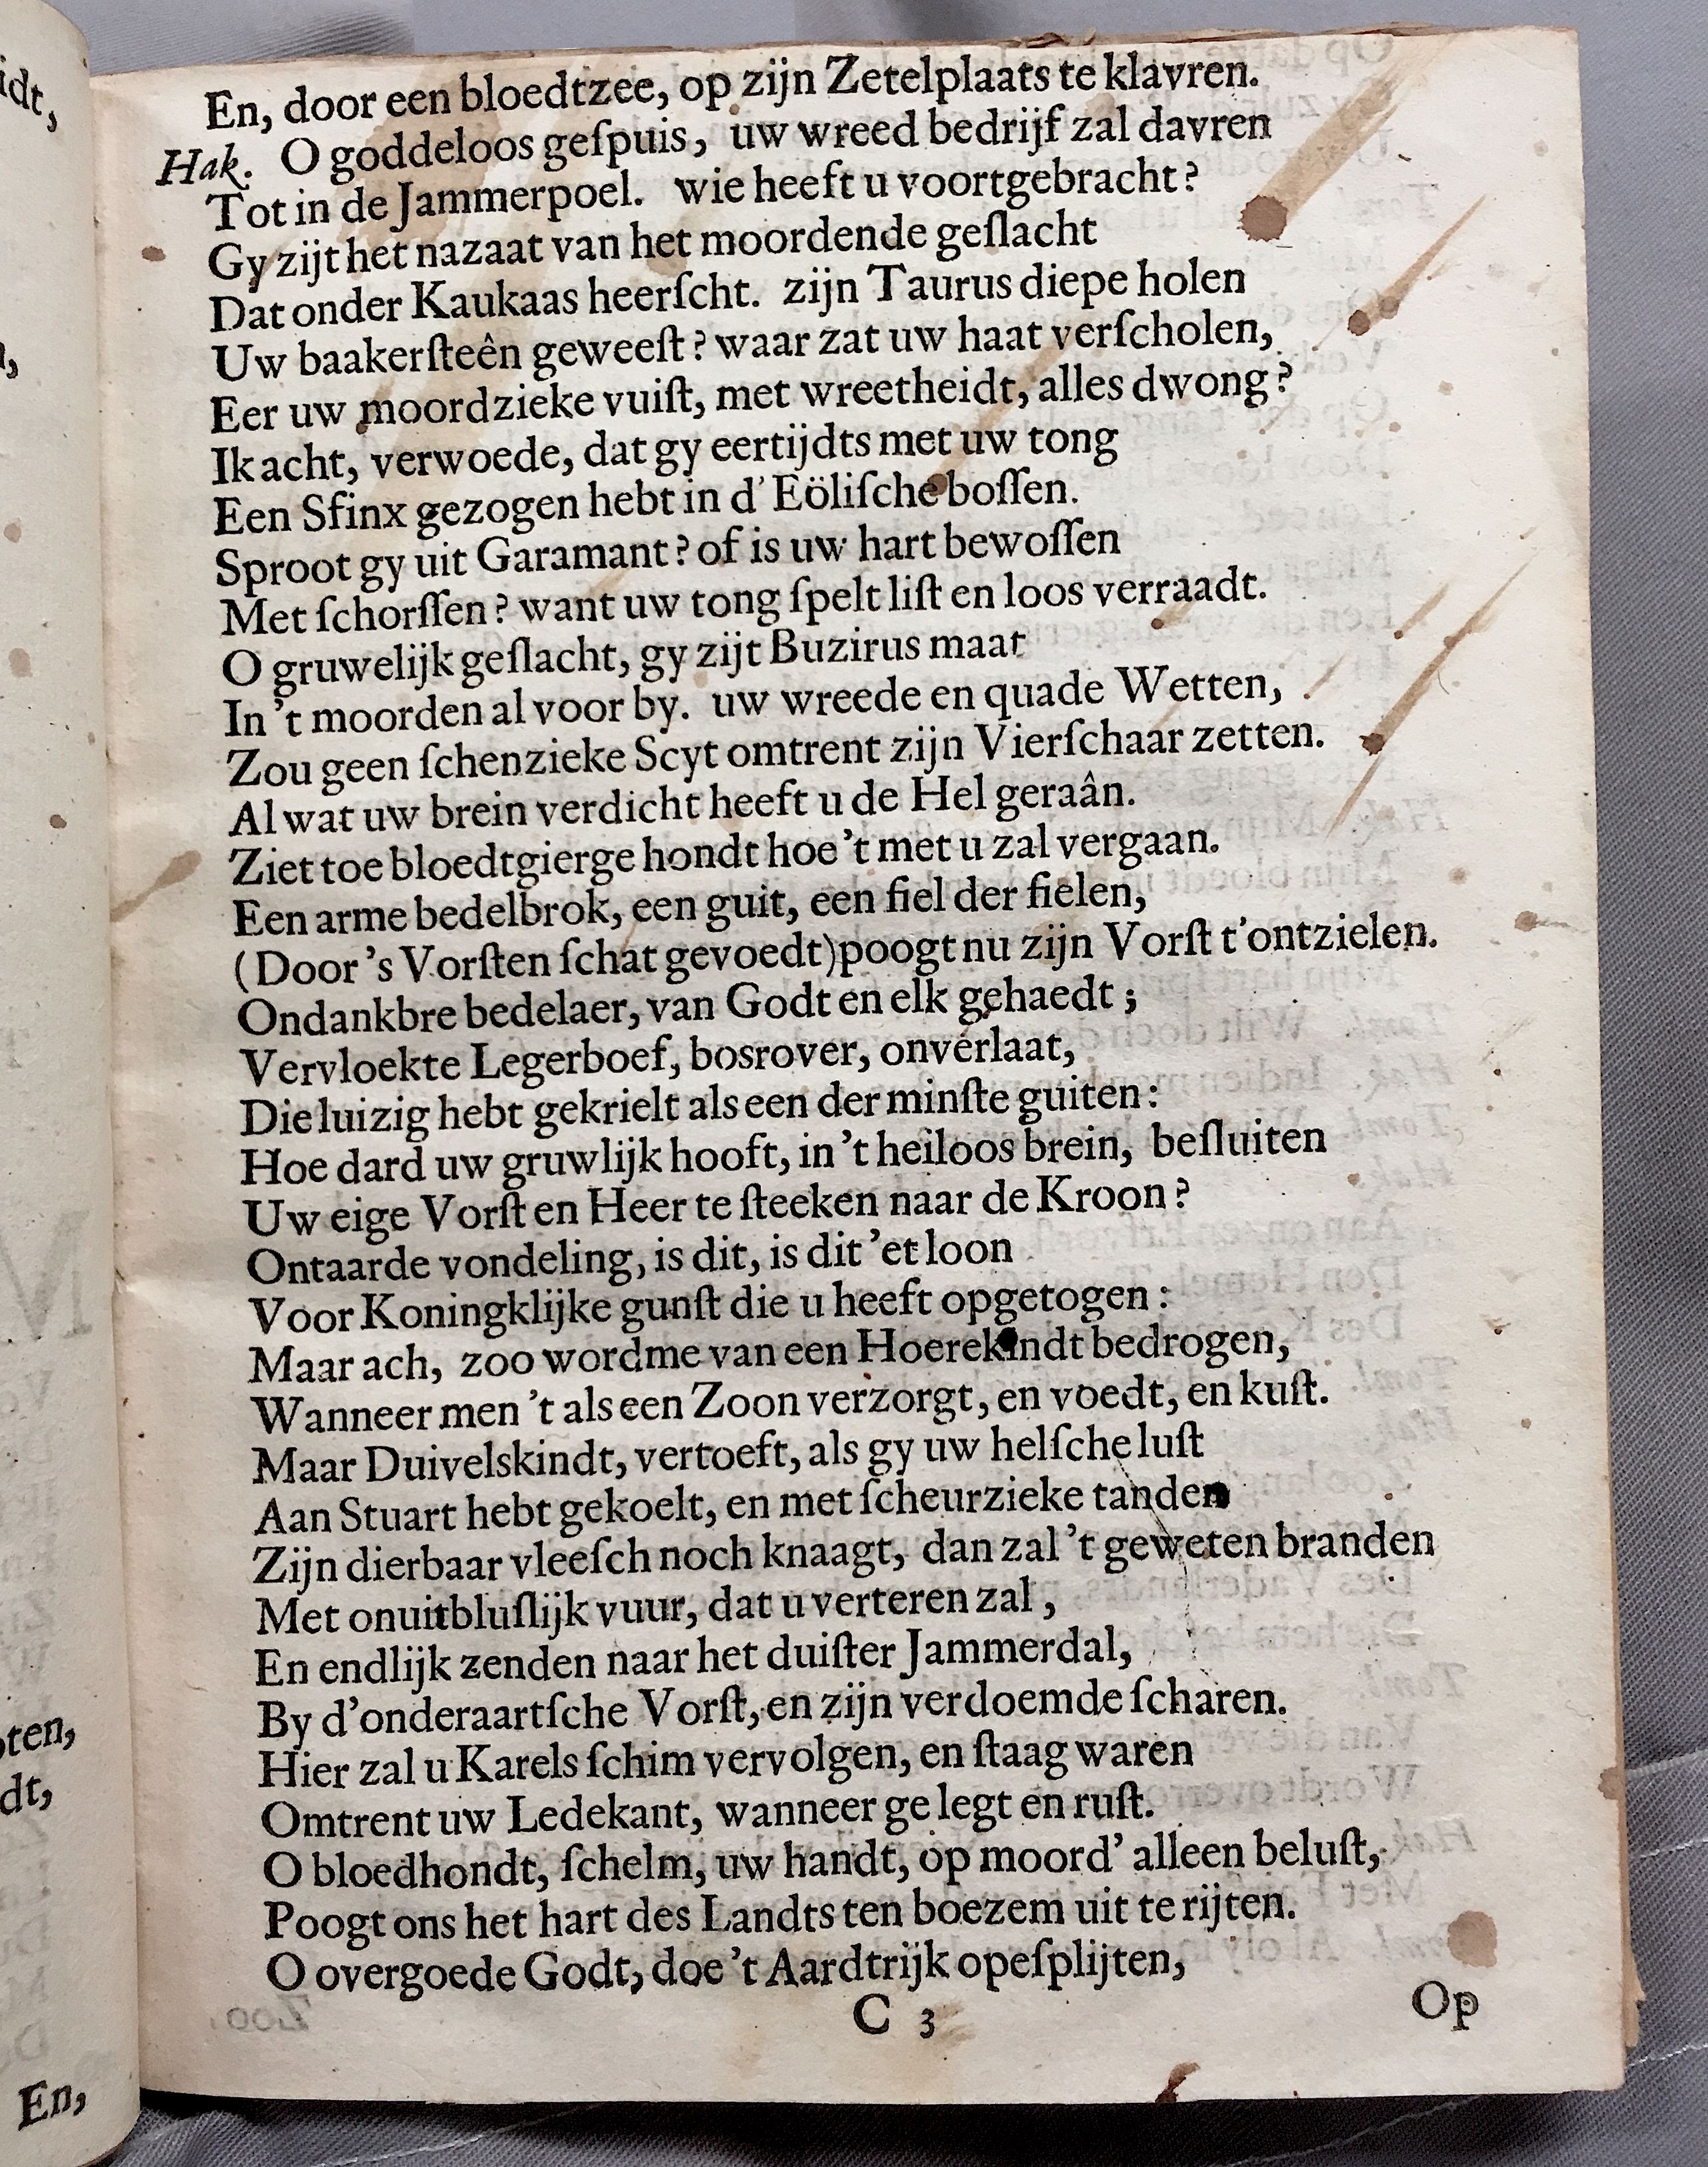 En, door een bloedtzee, op zijn Zetelplaats te klavren.
Hak. O goddeloos geſpuis, uw wreed bedrijf zal davren
Tot in de Jammerpoel. wie heeft u voortgebracht?
Gy zijt het nazaat van het moordende geſlacht
Dat onder Kaukaas heerſcht. zijn Taurus diepe holen
Uw baakerſteên geweeſt? waar zat uw haat verſcholen,
Eer uw moordzieke vuiſt, met wreetheidt, alles dwong?
Ik acht, verwoede, dat gy eertijdts met uw tong
Een Sfinx gezogen hebt in d'Eöliſche boſſen.
Sproot gy uit Garamant? of is uw hart bewoſſen
Met ſchorſſen? want uw tong ſpelt liſt en loos verraadt.
O gruwelijk geſlacht, gy zijt Buzirus maat
In 't moorden al voor by. uw wreede en quade Wetten,
Zou geen ſchenzieke Scyt omtrent zijn Vierſchaar zetten.
Al wat uw brein verdicht heeft u de Hel geraân.
Ziet toe bloedtgierge hondt hoe 't met u zal vergaan.
Een arme bedelbrok, een guit, een fiel der fielen,
(Door 's Vorſten ſchat gevoedt) poogt nu zijn Vorſt t'ontzielen.
Ondankbre bedelaer, van Godt en elk gehaedt;
Vervloekte Legerboef, bosrover, onverlaat,
Die luizig hebt gekrielt als een der minſte guiten:
Hoe dard uw gruwlijk hooft, in 't heiloos brein, beſluiten
Uw eige Vorſt en Heer te ſteeken naar de Kroon?
Ontaarde vondeling, is dit, is dit 'et loon
Voor Koningklijke gunſt die u heeft opgetogen:
Maar ach, zoo wordme van een Hoerekindt bedrogen,
Wanneer men 't als een Zoon verzorgt, en voedt, en kuſt.
Maar Duivelskindt, vertoeft, als gy uw helſche luſt
Aan Stuart hebt gekoelt, en met ſcheurzieke tanden
Zijn dierbaar vleeſch noch knaagt, dan zal 't geweten branden
Met onuitbluſlijk vuur, dat u verteren zal,
En endlijk zenden naar het duiſter Jammerdal,
By d'onderaartſche Vorſt, en zijn verdoemde ſcharen.
Hier zal u Karels ſchim vervolgen, en ſtaag waren
Omtrent uw Ledekant, wanneer ge legt en ruſt.
O bloedhondt, ſchelm, uw handt, op moord' alleen beluſt,
Poogt ons het hart des Landts ten boezem uit te rijten.
O overgoede Godt, doe 't Aardtrijk opeſplijten,
C 3
Op
idt,
ten,
dt,
En,